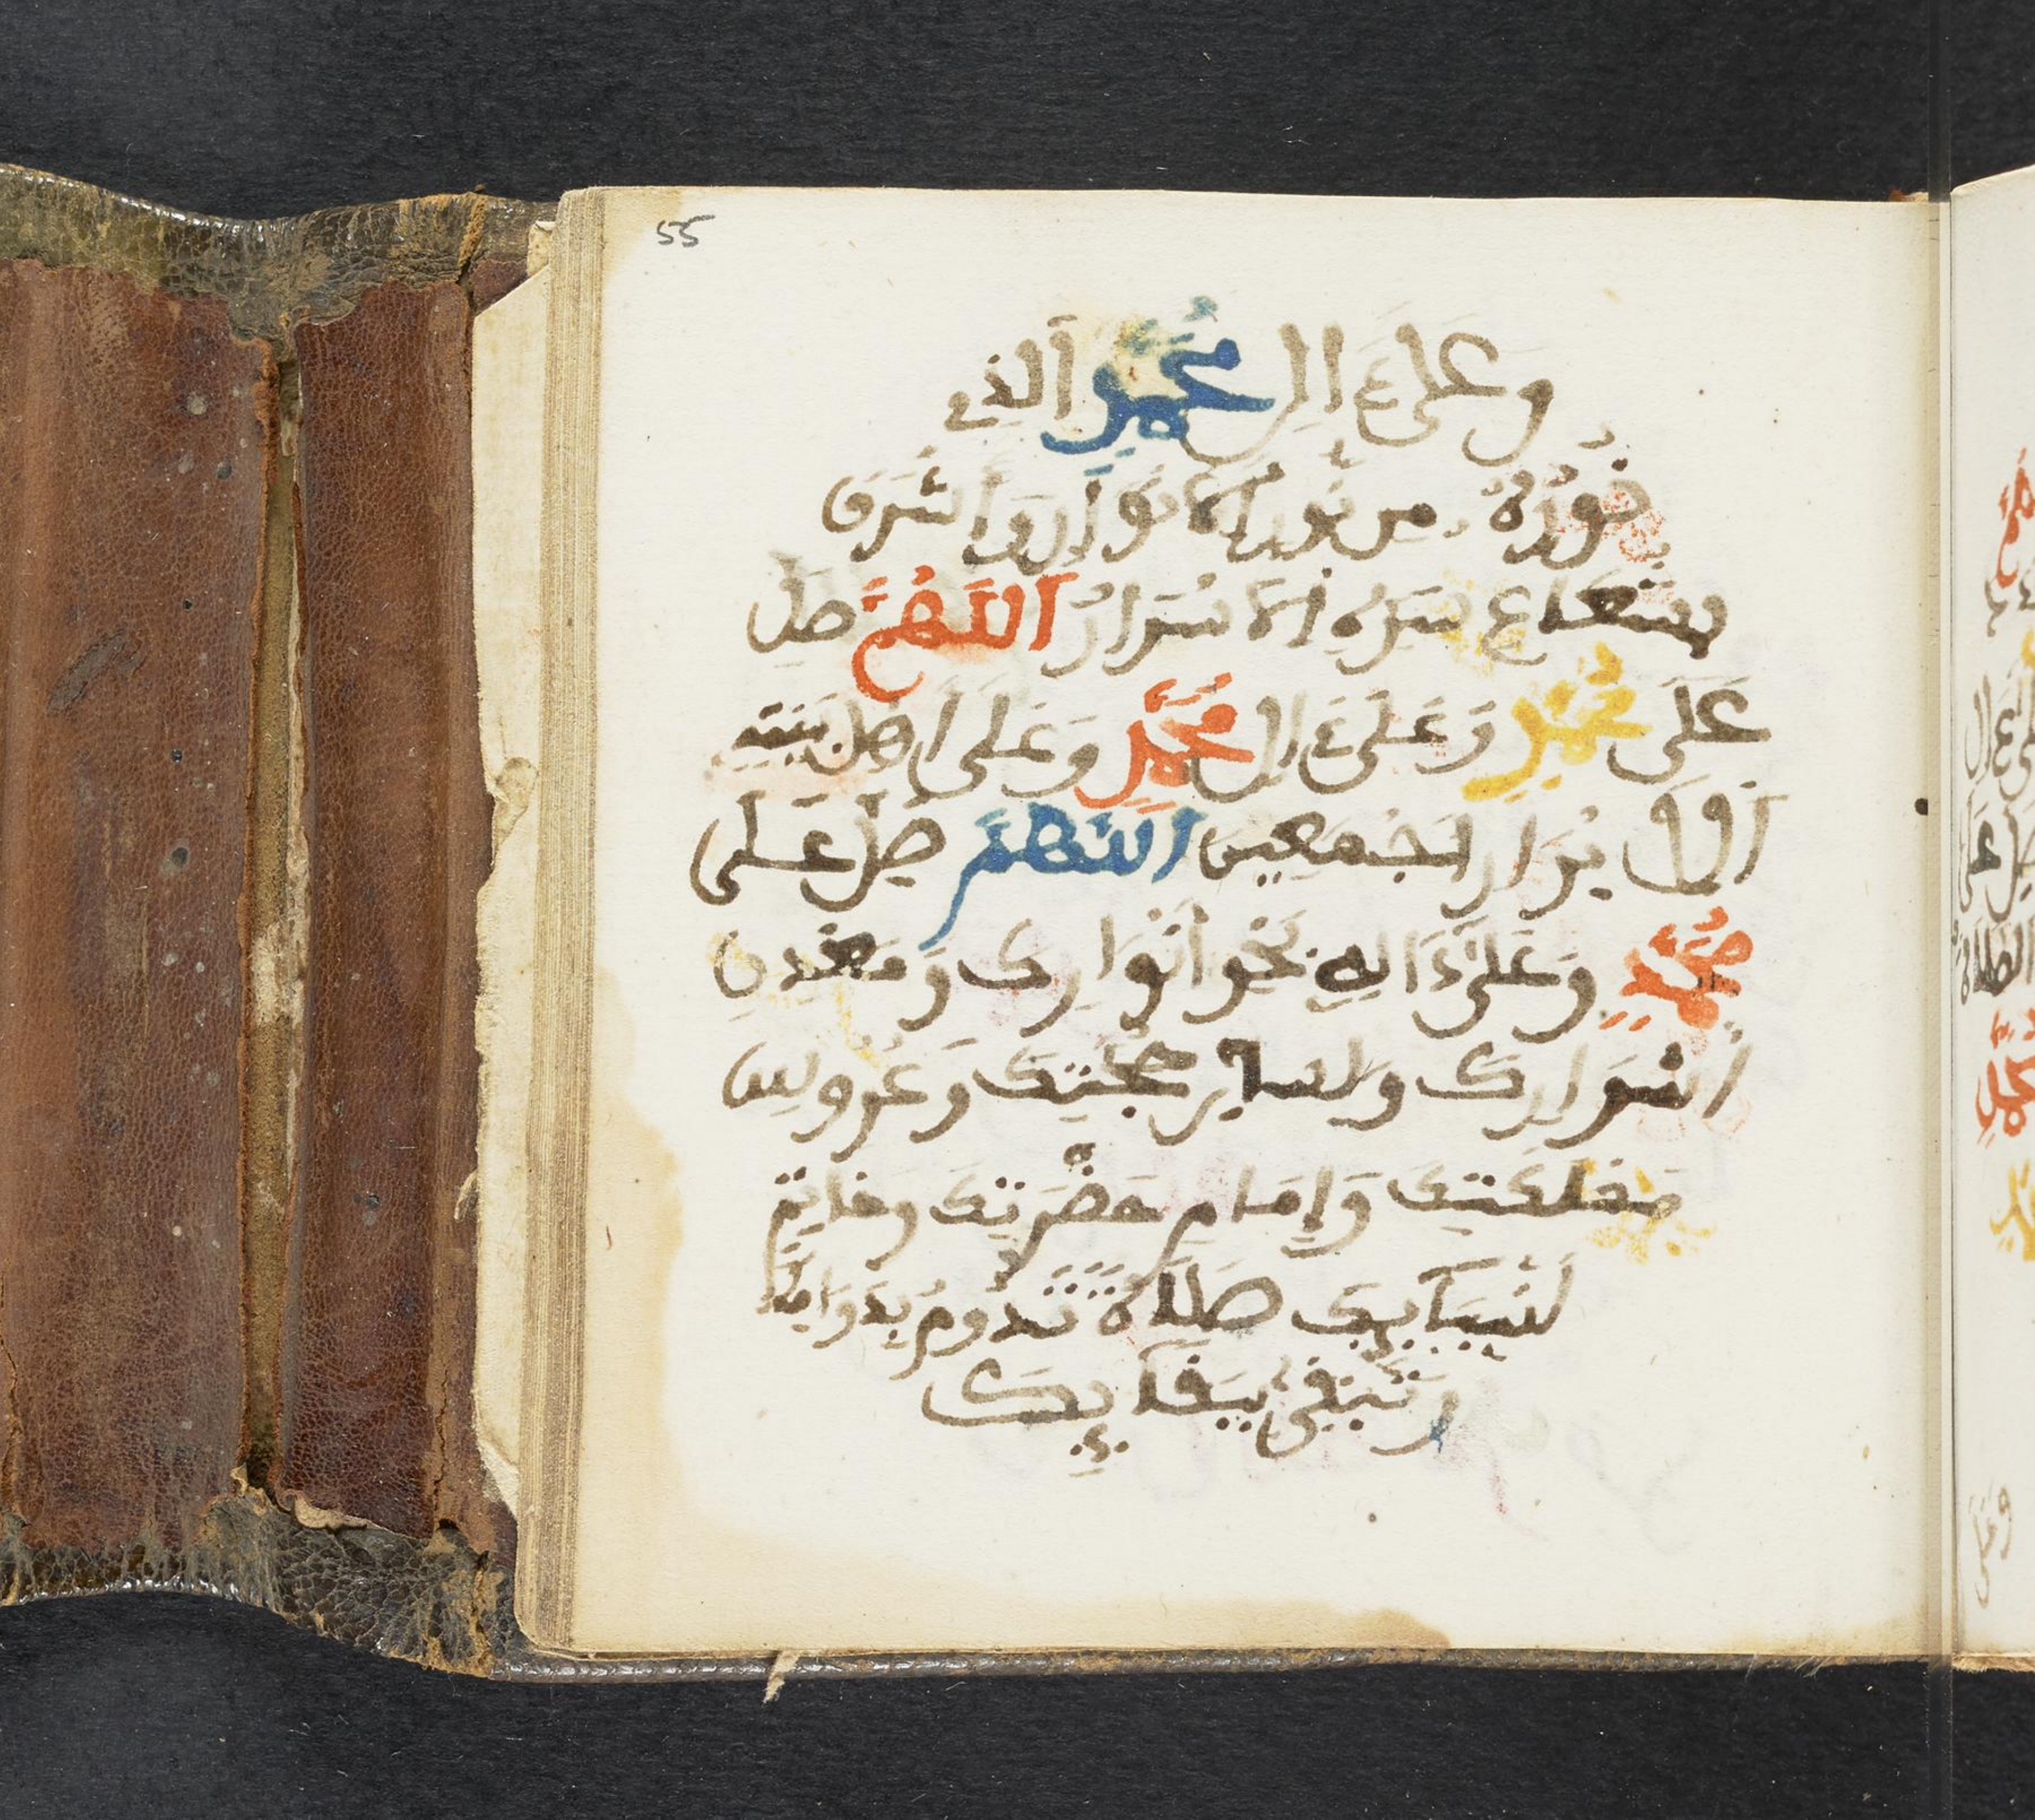 55
وعلى ءال محمد الذي
نوره من نور الانوار واشرق
بشعاع سره الاسرار اللهم صل
على محمد وعلى ءال محمد وعلى اهل بيته
الابرار اجمعين اللهم صل على
محمد وعلى ءاله بحر انوارك ومعدن
اسرارك ولسان حجتك وعروس
مملكتك وإمام حضرتك وخاتم
انبيايك صلاة تدوم بدوامك
وتبقى ببقايك